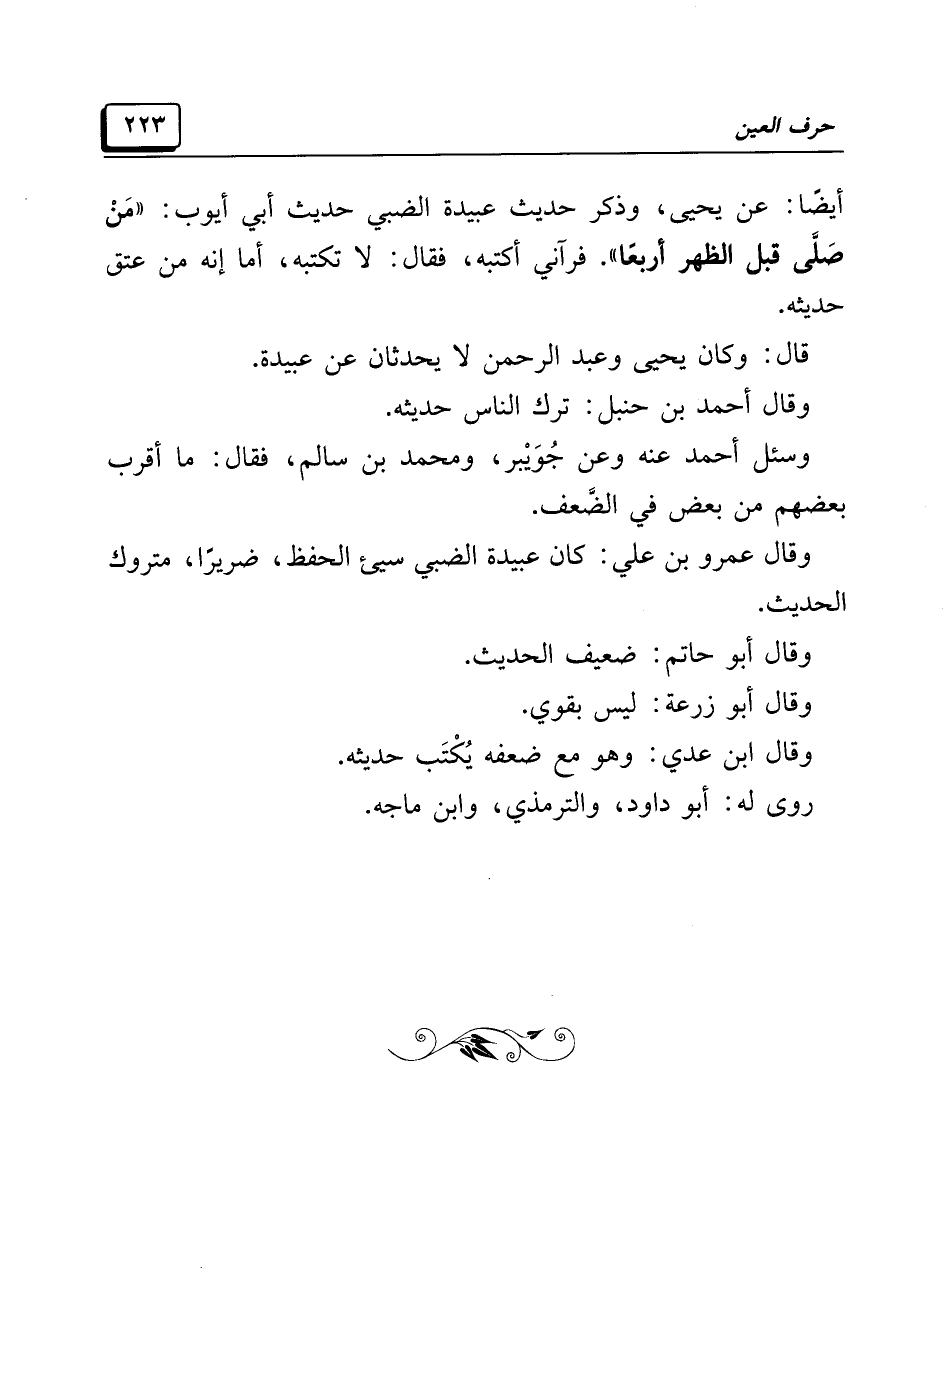 حرف العين
٢٢٣
أيضًا: عن يحيى، وذكر حديث عبيدة الضبي حديث أبي أيوب: «مَنْ
صَلَّى قبل الظهر أربعًا». فرآني أكتبه، فقال: لا تكتبه، أما إنه من عتق
حديثه.
قال: وكان يحيى وعبد الرحمن لا يحدثان عن عبيدة.
وقال أحمد بن حنبل: ترك الناس حديثه.
وسئل أحمد عنه وعن جُوَيْبر، ومحمد بن سالم، فقال: ما أقرب
بعضهم من بعض في الضَّعف.
وقال عمرو بن علي: كان عبيدة الضبي سيئ الحفظ، ضريرًا، متروك
الحديث.
وقال أبو حاتم: ضعيف الحديث.
وقال أبو زرعة: ليس بقوي.
وقال ابن عدي: وهو مع ضعفه يُكْتَب حديثه.
روى له: أبو داود، والترمذي، وابن ماجه.